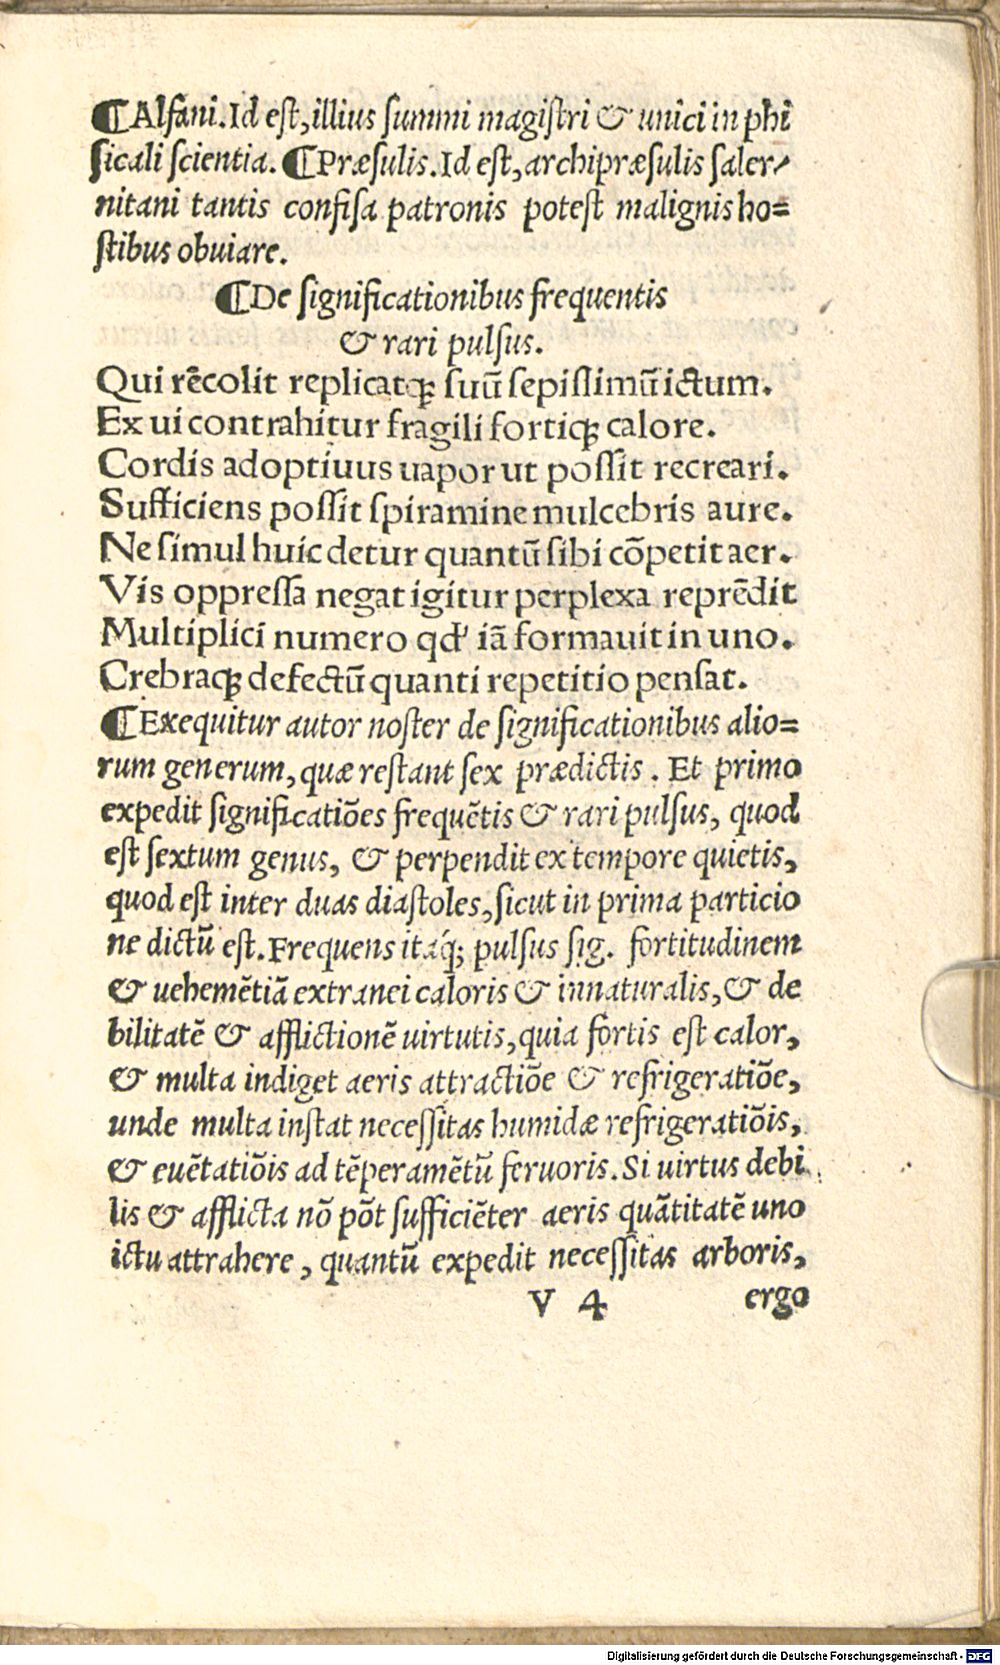 ¶Alfani.Id est,illius summi magistri & unici in phi
sicali scientia. ¶Præsulis.Id est,archipræsulis saler-
nitani tantis confisa patronis potest malignis ho=
stibus obuiare.
¶De significationibus frequentis
& rari pulsus.
Qui rēcolit replicatqꝫ suū sepissimū ictum.
Ex ui contrahitur fragili fortiqꝫ calore.
Cordis adoptiuus uapor ut possit recreari.
Sufficiens possit spiramine mulcebris aure.
Ne simul huic detur quantū sibi cōpetit aer.
Vis oppressa negat igitur perplexa reprēdit
Multiplici numero qđ iā formauit in uno.
Crebraqꝫ defectū quanti repetitio pensat.
¶Exequitur autor noster de significationibus alio=
rum generum, quæ restant sex prædictis. Et primo
expedit significatiōes frequētis & rari pulsus, quod
est sextum genus, & perpendit ex tempore quietis,
quod est inter duas diastoles, sicut in prima particio
ne dictū est. Frequens itaq́; pulsus sig. fortitudinem
& uehemētiā extranei caloris & innaturalis, & de
bilitatē & afflictionē uirtutis, quia fortis est calor,
& multa indiget aeris attractiōe & refrigeratiōe,
unde multa instat necessitas humidæ refrigeratiōis,
& euētatiōis ad tēperamētū feruoris. Si uirtus debi
lis & afflicta nō pōt sufficiēter aeris quātitatē uno
ictu attrahere, quantū expedit necessitas arboris,
V 4 ergo
Digitalisierung gefördert durch die Deutsche Forschungsgemeinschaft - DFG